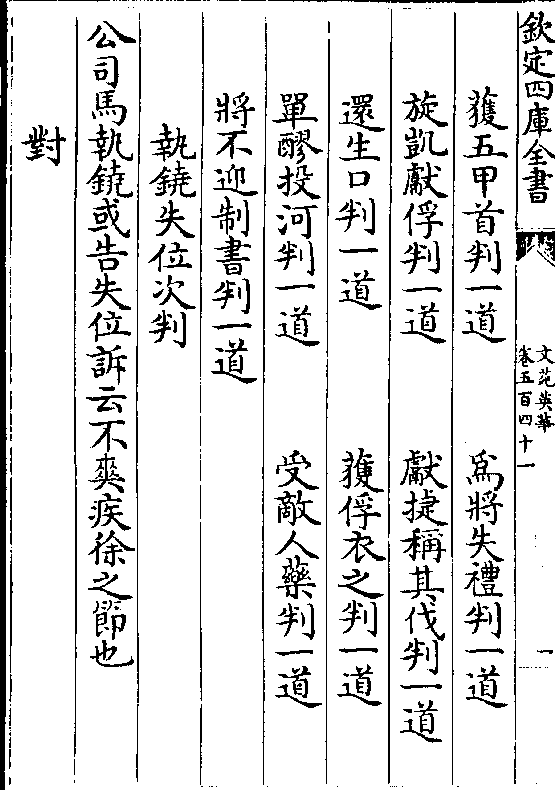 欽定四庫全書
文苑英華
卷五百四十一
一
獲五甲首判一道　為將失禮判一道
旋凱獻俘判一道　獻捷稱其伐判一道
還生口判一道　獲俘衣之判一道
單醪投河判一道　受敵人藥判一道
將不迎制書判一道
執鐃失位次判
公司馬執鐃或告失位訴云不爽疾徐之節也
對